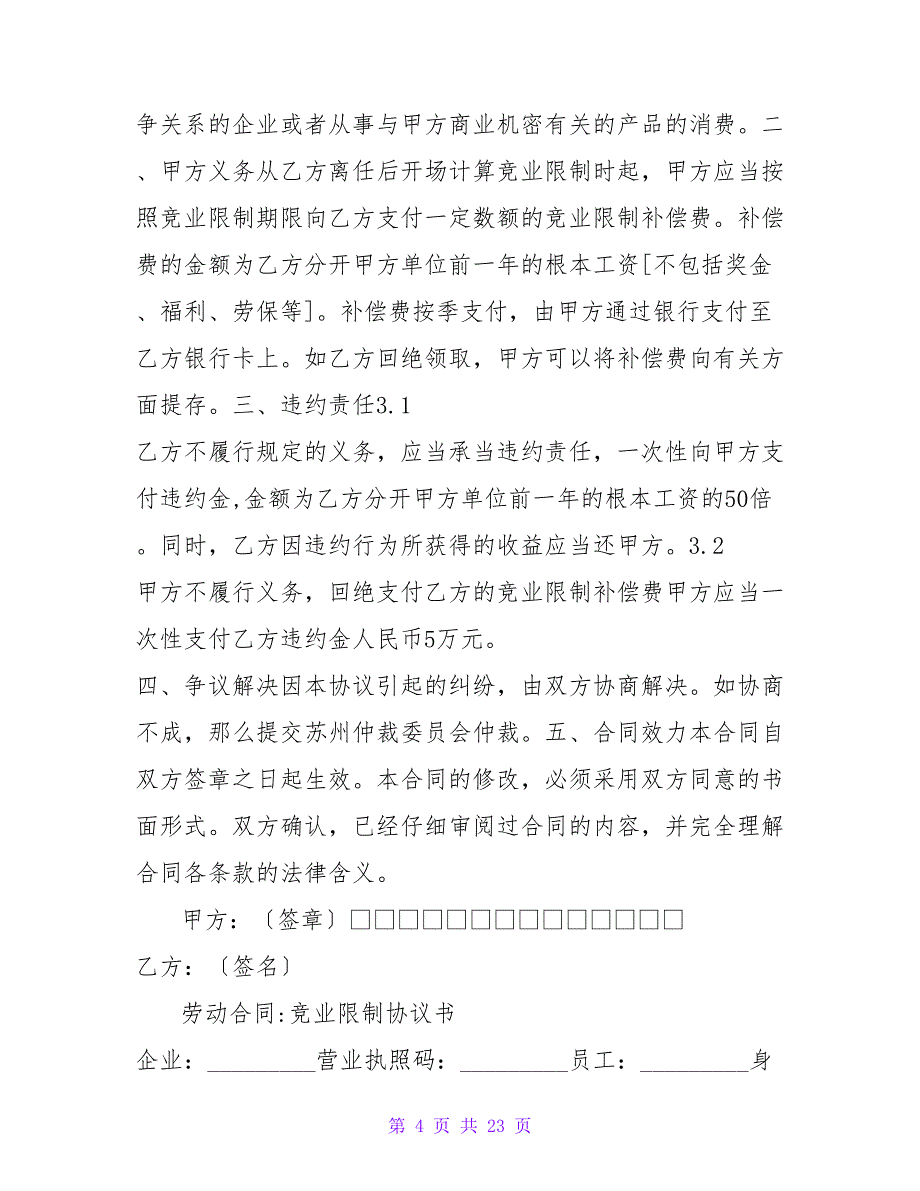 争关系的企业或者从事与甲方商业机密有关的产品的消费。二
、甲方义务从乙方离任后开场计算竞业限制时起，甲方应当按
照竞业限制期限向乙方支付一定数额的竞业限制补偿费。补偿
费的金额为乙方分开甲方单位前一年的根本工资[不包括奖金
、福利、劳保等]。补偿费按季支付，由甲方通过银行支付至
乙方银行卡上。如乙方回绝领取，甲方可以将补偿费向有关方
面提存。三、违约责任3.1
乙方不履行规定的义务，应当承当违约责任，一次性向甲方支
付违约金,金额为乙方分开甲方单位前一年的根本工资的50倍
。同时，乙方因违约行为所获得的收益应当还甲方。3.2
甲方不履行义务，回绝支付乙方的竞业限制补偿费甲方应当一
次性支付乙方违约金人民币5万元。
四、争议解决因本协议引起的纠纷，由双方协商解决。如协商
不成，那么提交苏州仲裁委员会仲裁。五、合同效力本合同自
双方签章之日起生效。本合同的修改，必须采用双方同意的书
面形式。双方确认，已经仔细审阅过合同的内容，并完全理解
合同各条款的法律含义。
甲方：〔签章〕□□□□□□□□□□□□□□
乙方：〔签名〕
劳动合同:竞业限制协议书
企业：_________营业执照码：_________员工：_________身
第 4 页 共 23 页